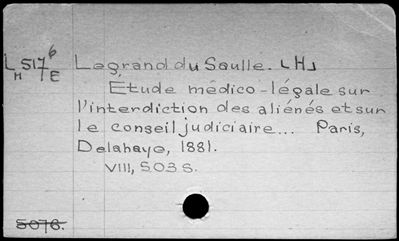 L H 517 6/E Legrand du Saulle. [H]
Étude médico-légale sur
l'interdiction des aliénés et sur
le conseil judiciaire... Paris,
Delahaye, 1881.
VIII, 503 s.
5076.